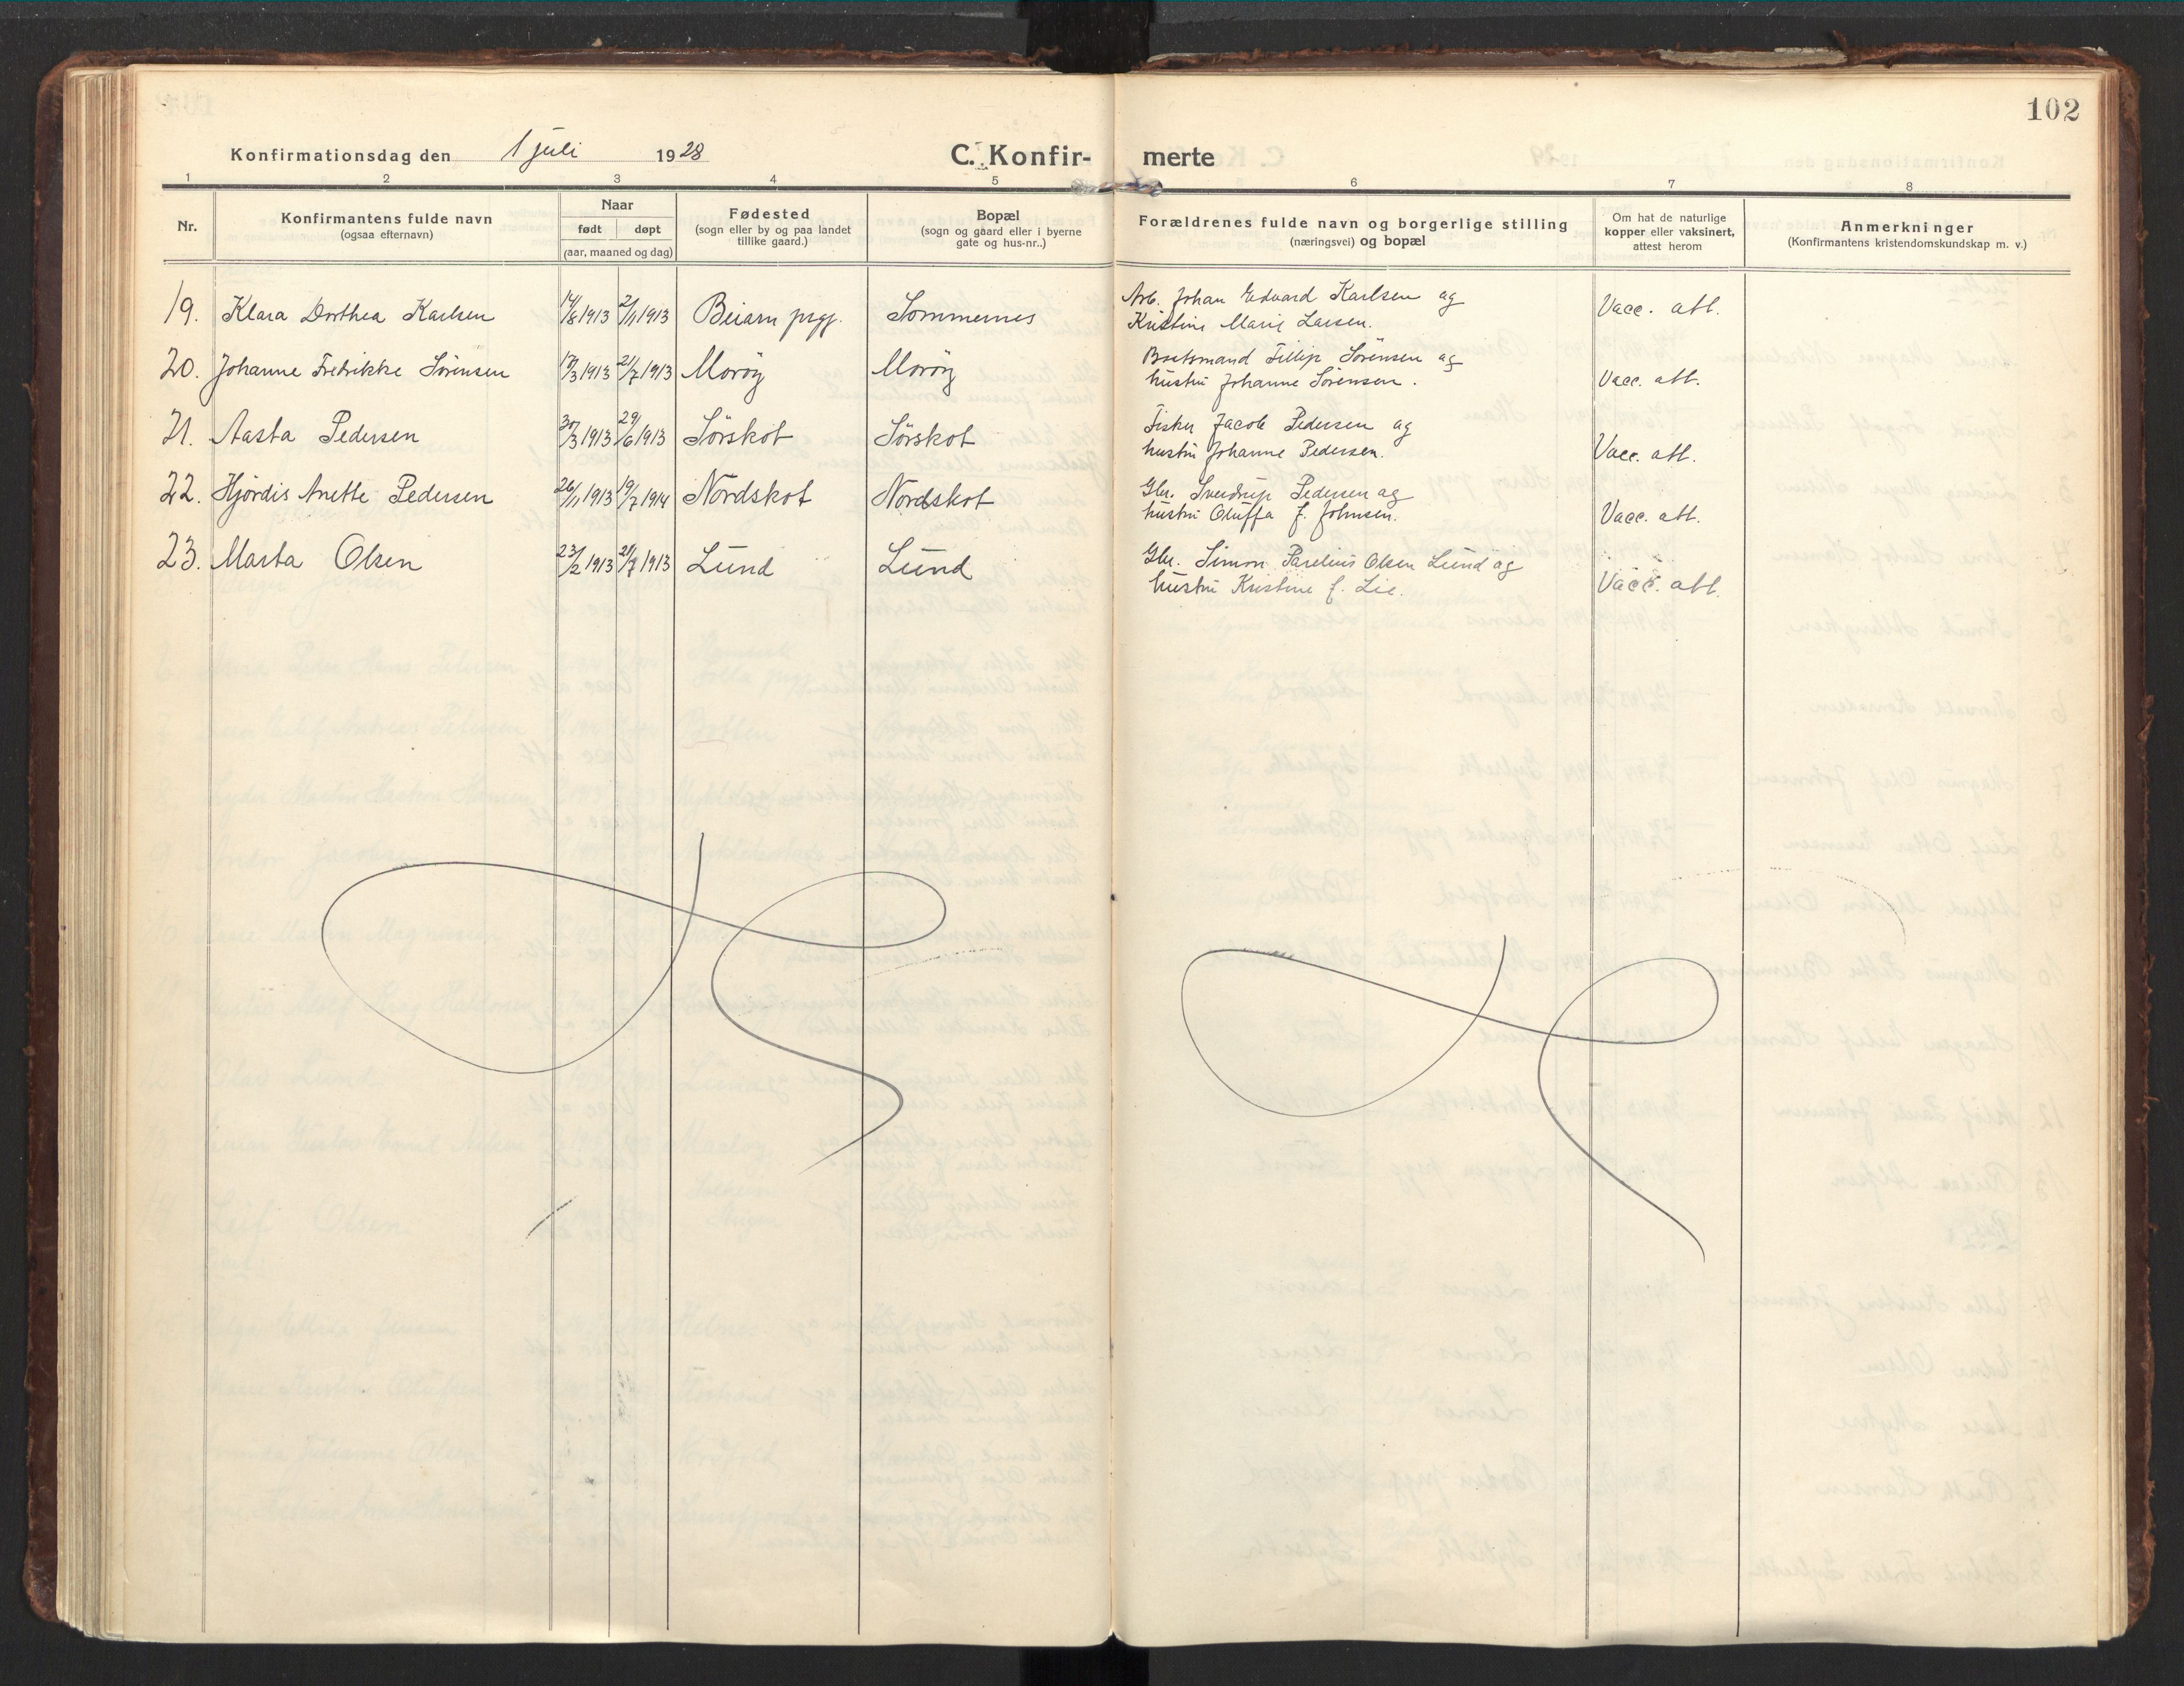 102
Konfirmationsdag den 1 juli 1928 C. Konfir- merte
1 2 3 4 5 6 7 8
Nr. Konfirmantens fulde navn (ogsaa efternavn) Naar født døpt (aar, maaned og dag) Fødested (sogn eller by og paa landet tillike gaard.) Bopæl (sogn og gaard eller i byerne gate og hus-nr..) Forældrenes fulde navn og borgerlige stilling (næringsvei) og bopæl Om hat de naturlige kopper eller vaksinert, attest herom Anmerkninger (Konfirmantens kristendomskundskap m. v.)
19. Klara Dorthea Karlsen 14/8 1913 2/11 1913 Beiarn prgj. Sommernes Arb. Johan Edvard Karlsen og
Kristine Marie Larsen. Vacc. att.
20. Johanne Fredrikke Sörensen 17/3 1913 21/7 1913 Moröy Moröy Baatsmand Fillip Sörensen og
hustru Johanne Sörensen. Vacc. att.
21. Aasta Pedersen 30/3 1913 29/6 1913 Sörskot Sörskot Fisker Jacob Pedersen og
hustru Johanne Pedersen. Vacc. att.
22. Hjördis Anette Pedersen 26/11 1913 19/7 1914 Nordskot Nordskot Gbr. Sverdrup Pedersen og
hustru Oluffa f. Johnsen. Vacc. att.
23. Marta Olsen 23/2 1913 1913 Lund Lund Gbr. Simon Parelius Olsen Lund og
hustru Kristine f. Lie. Vacc. att.